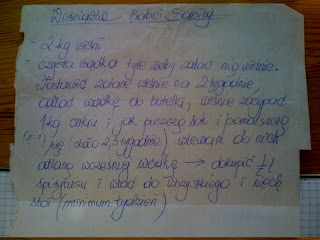 Wiśniówka Babci Sabiny
- 2 kg wiśni
- czysta wódka tyle żeby zalać nią wiśnie.
Zostawić zalane wiśnie na 2 tygodnie,
odlać wódkę do butelki, wiśnie zasypać
1 kg cukru i jak puszczą sok i pomarszczą
się (około 2,3 tygodnie) wlewam do nich
odlaną wcześniej wódkę → dokupić 1/2 l
spirytusu i wlać do wszystkiego i niech
stoi (minimum tydzień)